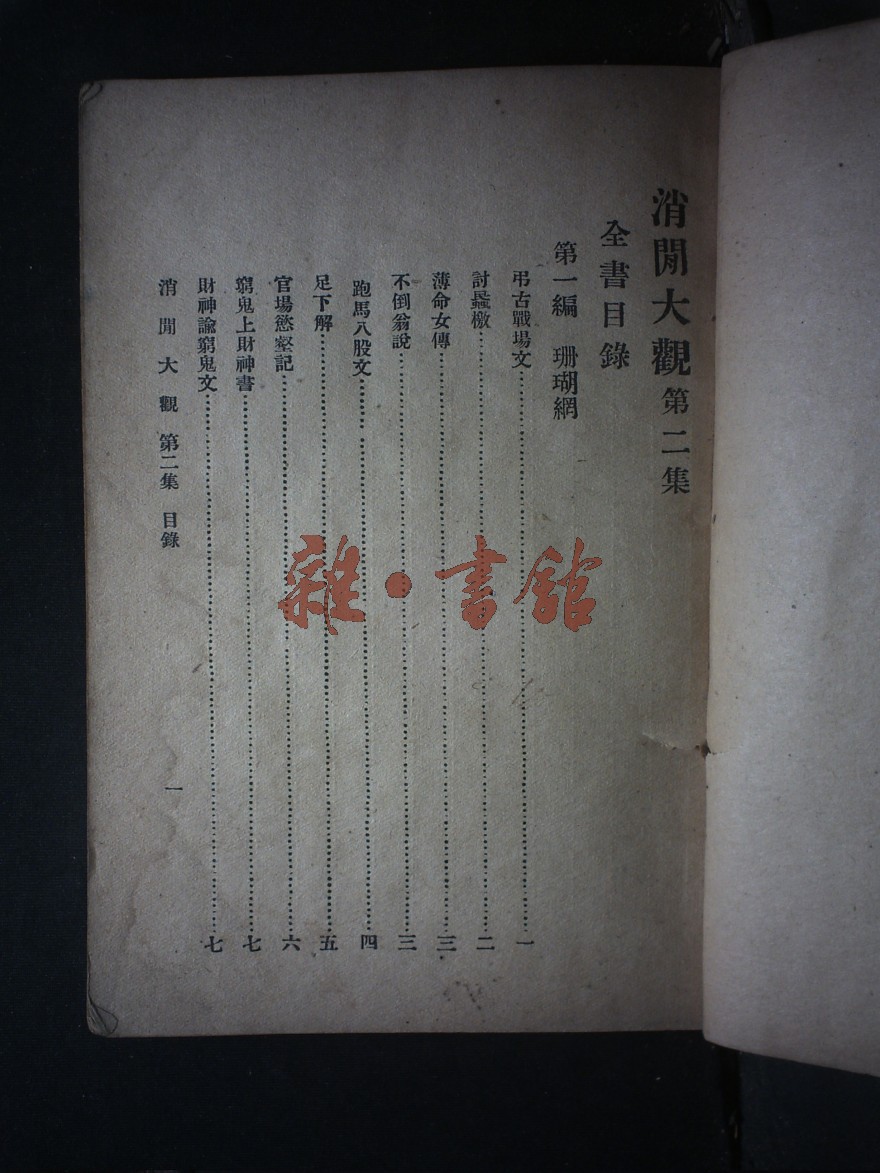 消閒大觀第二集
全書目錄
第一編 珊瑚網
弔古戰場文……一
討蟁檄……二
薄命女傳……三
不倒翁說……三
跑馬八股文……四
足下解……五
官場慾壑記……六
窮鬼上財神書……七
財神諭窮鬼文……七
消閒大觀 第二集 目錄 一
雜·書館